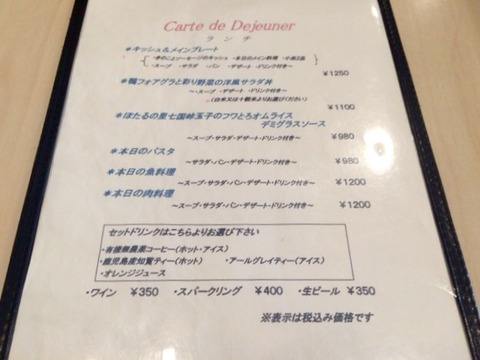 Carte de Dejeuner
ランチ
＊キッシュ＆メインプレート
・きのことソーセージのキッシュ ・本日のメイン料理 ・小菜2品
・スープ ・サラダ ・パン ・デザート ・ドリンク付き～
¥1250
＊鴨フォアグラと彩り野菜の洋風サラダ丼
～スープ ・デザート ・ドリンク付き～
（白米又は十穀米よりお選びください）
¥1100
＊ほたるの里七国峠玉子のフワとろオムライス
デミグラスソース
～スープ・サラダ・デザート・ドリンク付き～ ¥980
＊本日のパスタ
～サラダ・パン・デザート・ドリンク付き～ ¥980
＊本日の魚料理
～スープ・サラダ・パン・デザート・ドリンク付き～ ¥1200
＊本日の肉料理
～スープ・サラダ・パン・デザート・ドリンク付き～ ¥1200
セットドリンクはこちらよりお選び下さい
・有機無農薬コーヒー（ホット・アイス）
・鹿児島産知覧ティー（ホット） ・アールグレイティー（アイス）
・オレンジジュース
・ワイン ¥350 ・スパークリング ¥400 ・生ビール ¥350
※表示は税込み価格です